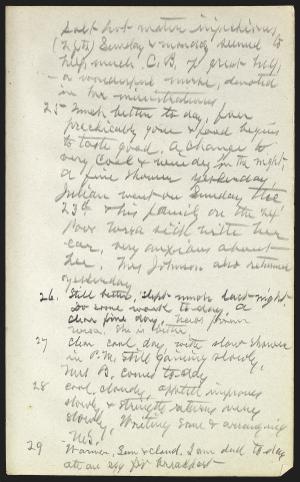 salt hot water injections,
(24th) Sunday & monday seemed to
help much. C.B. of great help
— a wonderful nurse, devoted
in her ministrations.
25 — Much better to-day, fever
practically gone & food begins
to taste good. A change to
very cool & windy in the night,
a fine shower yesterday.
Julian went on Sunday the
23d & his family on the 24th
Poor Ursa sick with her
ear, very anxious about
her. Mrs Johnson also returned
yesterday
26. Still better, slept much last night.
Do some work to-day. A
clear fine day. News from
Ursa, she is better.
27 Clear cool day, with slow shower
in P.M. Still gaining slowly,
Mrs B. comes to-day
28 Cool, cloudy, appetite improves
slowly & strength returns very
slowly. Writing some & arranging
Mss.
29 Warmer, Sun & cloud, I am dull to-day
ate an egg for breakfast